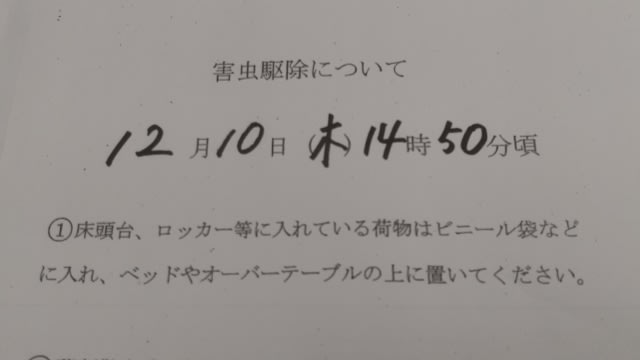 害虫駆除について
12月10日(木)14時50分頃
①床頭台、ロッカー等に入れている荷物はビニール袋など
に入れ、ベッドやオーバーテーブルの上に置いてください。